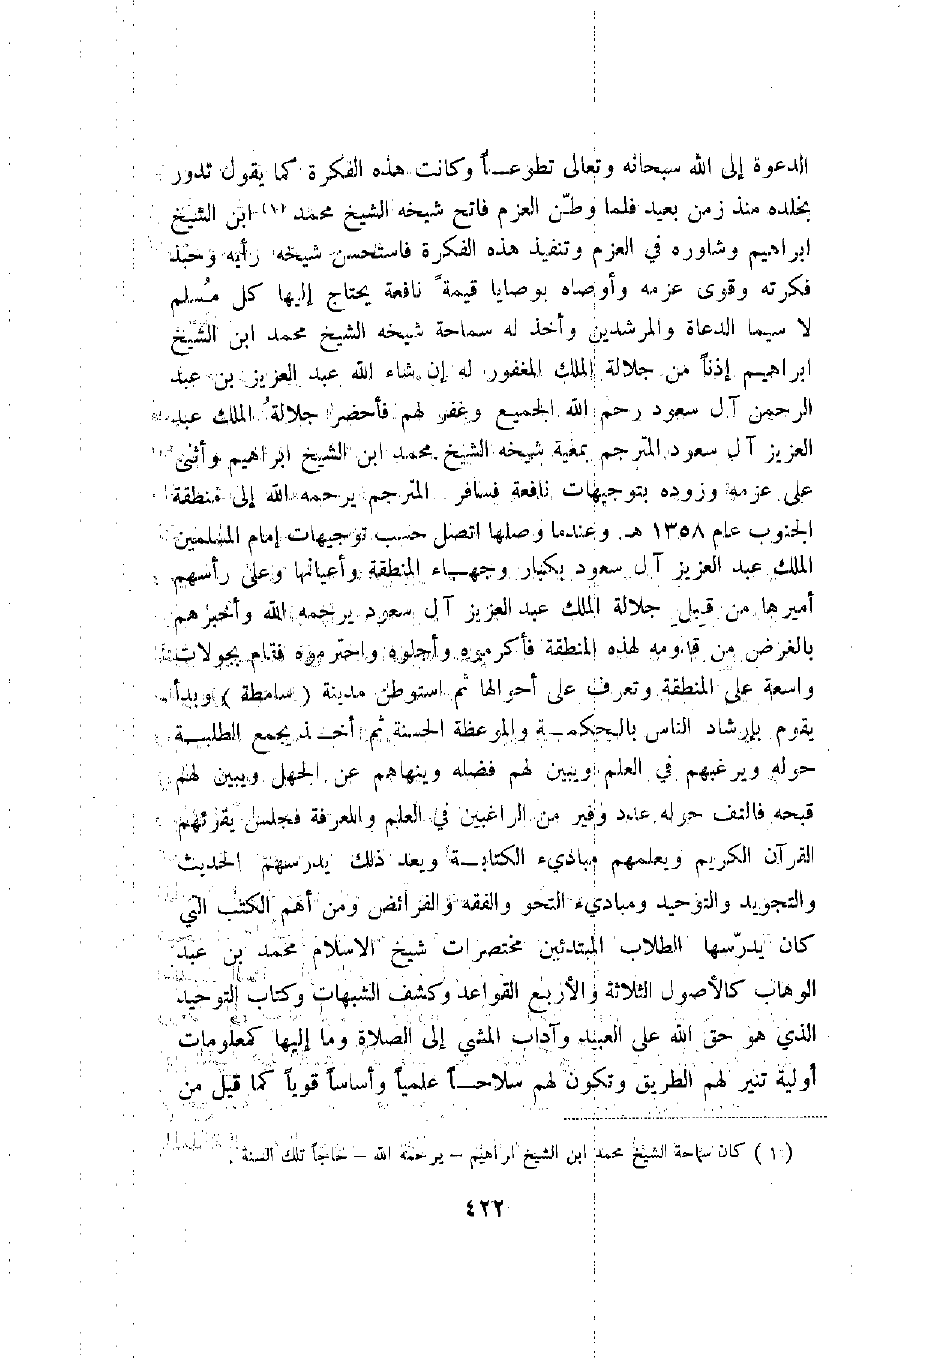 الدعوة إلى الله سبحانه وتعالى تطوعـاً وكانت هذه الفكرة كما يقول تدور
بخلده منذ زمن بعيد فلما وطّن العزم فاتح شيخه الشيخ محمد (١) ابن الشيخ
ابراهيم وشاوره في العزم وتنفيذ هذه الفكرة فاستحسن شيخه رأيه وحبذ
فكرته وقوى عزمه وأوصاه بوصايا قيمة نافعة يحتاج إليها كل مسلم
لا سيما الدعاة والمرشدين وأخذ له سماحة شيخه الشيخ محمد ابن الشيخ
ابراهيم إذناً من جلالة الملك المغفور له إن شاء الله عبد العزيز بن عبد
الرحمن آل سعود رحم الله الجميع وغفر لهم فأحضر جلالة الملك عبد
العزيز آل سعود المترجم بمعية شيخه الشيخ محمد ابن الشيخ ابراهيم وأثنى
على عزمه وزوده بتوجيهات نافعة فسافر المترجم يرحمه الله إلى منطقة
الجنوب عام ١٣٥٨ هـ. وعندما وصلها اتصل حسب توجيهات إمام المسلمين
الملك عبد العزيز آل سعود بكبار وجهـاء المنطقة وأعيانها وعلى رأسهم
أميرها من قبل جلالة الملك عبد العزيز آل سعود يرحمه الله وأخبرهم
بالغرض من قدومه لهذه المنطقة فأكرموه وأجلوه واحترموه فقام بجولات
واسعة على المنطقة وتعرف على أحوالها ثم استوطن مدينة ( سامطة ) وبدأ
يقوم بإرشاد الناس بالحكمـة والموعظة الحسنة ثم أخـذ يجمع الطلبـة
حوله ويرغبهم في العلم ويبين لهم فضله وينهاهم عن الجهل ويبين لهم
قبحه فالتف حوله عدد وفير من الراغبين في العلم والمعرفة فجلس يقرئهم
القرآن الكريم ويعلمهم مباديء الكتابـة وبعد ذلك يدرسهم الحديث
والتجويد والتوحيد ومباديء النحو والفقه والفرائض ومن أهم الكتب التي
كان يدرّسها الطلاب المبتدئين مختصرات شيخ الاسلام محمد بن عبد
الوهاب كالأصول الثلاثة والأربع القواعد وكشف الشبهات وكتاب التوحيد
الذي هو حق الله على العبيد وآداب المشي إلى الصلاة وما إليها كمعلومات
أولية تنير لهم الطريق وتكون لهم سلاحـاً علمياً وأساساً قوياً كما قيل من
( ١ ) كان سماحة الشيخ محمد ابن الشيخ ابراهيم – يرحمه الله – حاجاً تلك السنة .
٤٢٢